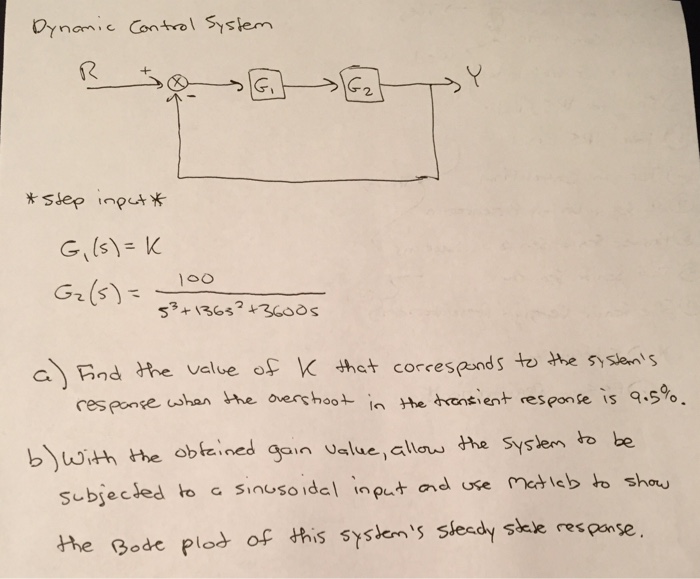 Dynamic Control System
R + - G₁ G₂ Y
* step input *
G₁(s) = K
G₂(s) = 100
s³ + 136s² + 3600s
a) Find the value of K that corresponds to the system's
response when the overshoot in the transient response is 9.5%.
b) With the obtained gain value, allow the system to be
subjected to a sinusoidal input and use Matlab to show
the Bode plot of this system's steady state response.